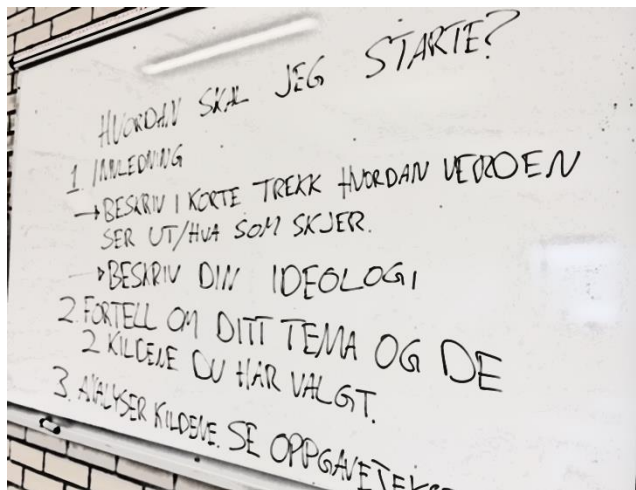 HVORDAN SKAL JEG STARTE?
1 INNLEDNING
→ BESKRIV I KORTE TREKK HVORDAN VERDEN
SER UT/HVA SOM SKJER.
→ BESKRIV DIN IDEOLOGI
2. FORTELL OM DITT TEMA OG DE
2 KILDENE DU HAR VALGT.
3. ANALYSER KILDENE. SE